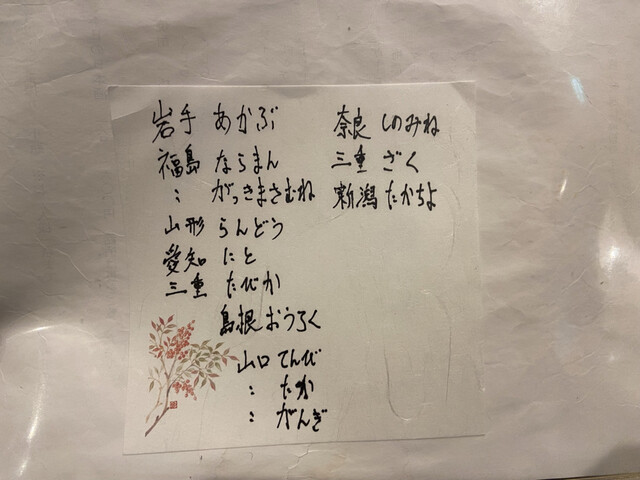 岩手 あかぶ
福島 ならまん
： がっきまさむね
山形 らんどう
愛知 にと
三重 たびか
島根 おうろく
山口 てんび
： たか
： がんぎ
奈良 しのみね
三重 ざく
新潟 たかちよ